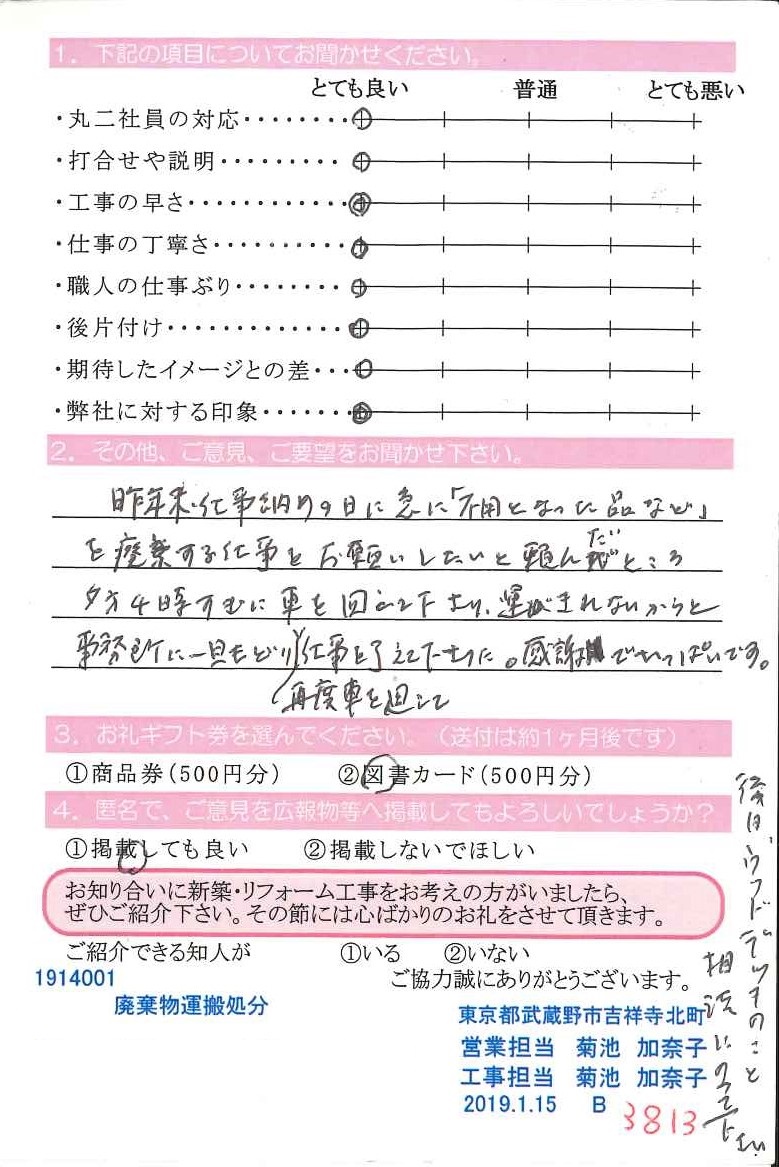 1. 下記の項目についてお聞かせください。
とても良い 普通 とても悪い
・丸二社員の対応・・・・・・・・
・打合せや説明・・・・・・・・・
・工事の早さ・・・・・・・・・・・
・仕事の丁寧さ・・・・・・・・・
・職人の仕事ぶり・・・・・・・・
・後片付け・・・・・・・・・・・・
・期待したイメージとの差・・・
・弊社に対する印象・・・・・・・
2. その他、ご意見、ご要望をお聞かせ下さい。
昨年末、仕事納めの日に急に「不用となった品など」
を廃棄する仕事をお願いしたいと頼んだところ
夕方4時すぎに車を回して下さり、運びきれないからと
事務所に一旦もどり仕事を了えて下さった。感謝でいっぱいです。
再度車を廻して
3. お礼ギフト券を選んでください。(送付は約1ヶ月後です)
①商品券(500円分) ②図書カード(500円分)
4. 匿名で、ご意見を広報物等へ掲載してもよろしいでしょうか?
①掲載しても良い ②掲載しないでほしい
お知り合いに新築・リフォーム工事をお考えの方がいましたら、
ぜひご紹介下さい。その節には心ばかりのお礼をさせて頂きます。
ご紹介できる知人が ①いる ②いない
ご協力誠にありがとうございます。
後日、ウッドデッキのこと
相談にのって下さい
1914001
廃棄物運搬処分
東京都武蔵野市吉祥寺北町
営業担当 菊池 加奈子
工事担当 菊池 加奈子
2019.1.15 B
3813